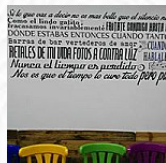 Si lo que vas a decir no es mas bello que el silencio no
Como el lindo galito
fracasamos invariablemente
DÓNDE ESTABAS ENTONCES CUANDO TANTO
Barras de bar vertederos de amor CUANDO
RETALES DE MI VIDA FOTOS A CONTRA LUZ HABLALE
Nunca el tiempo es perdido
Nos es que el tiempo lo cure todo pero